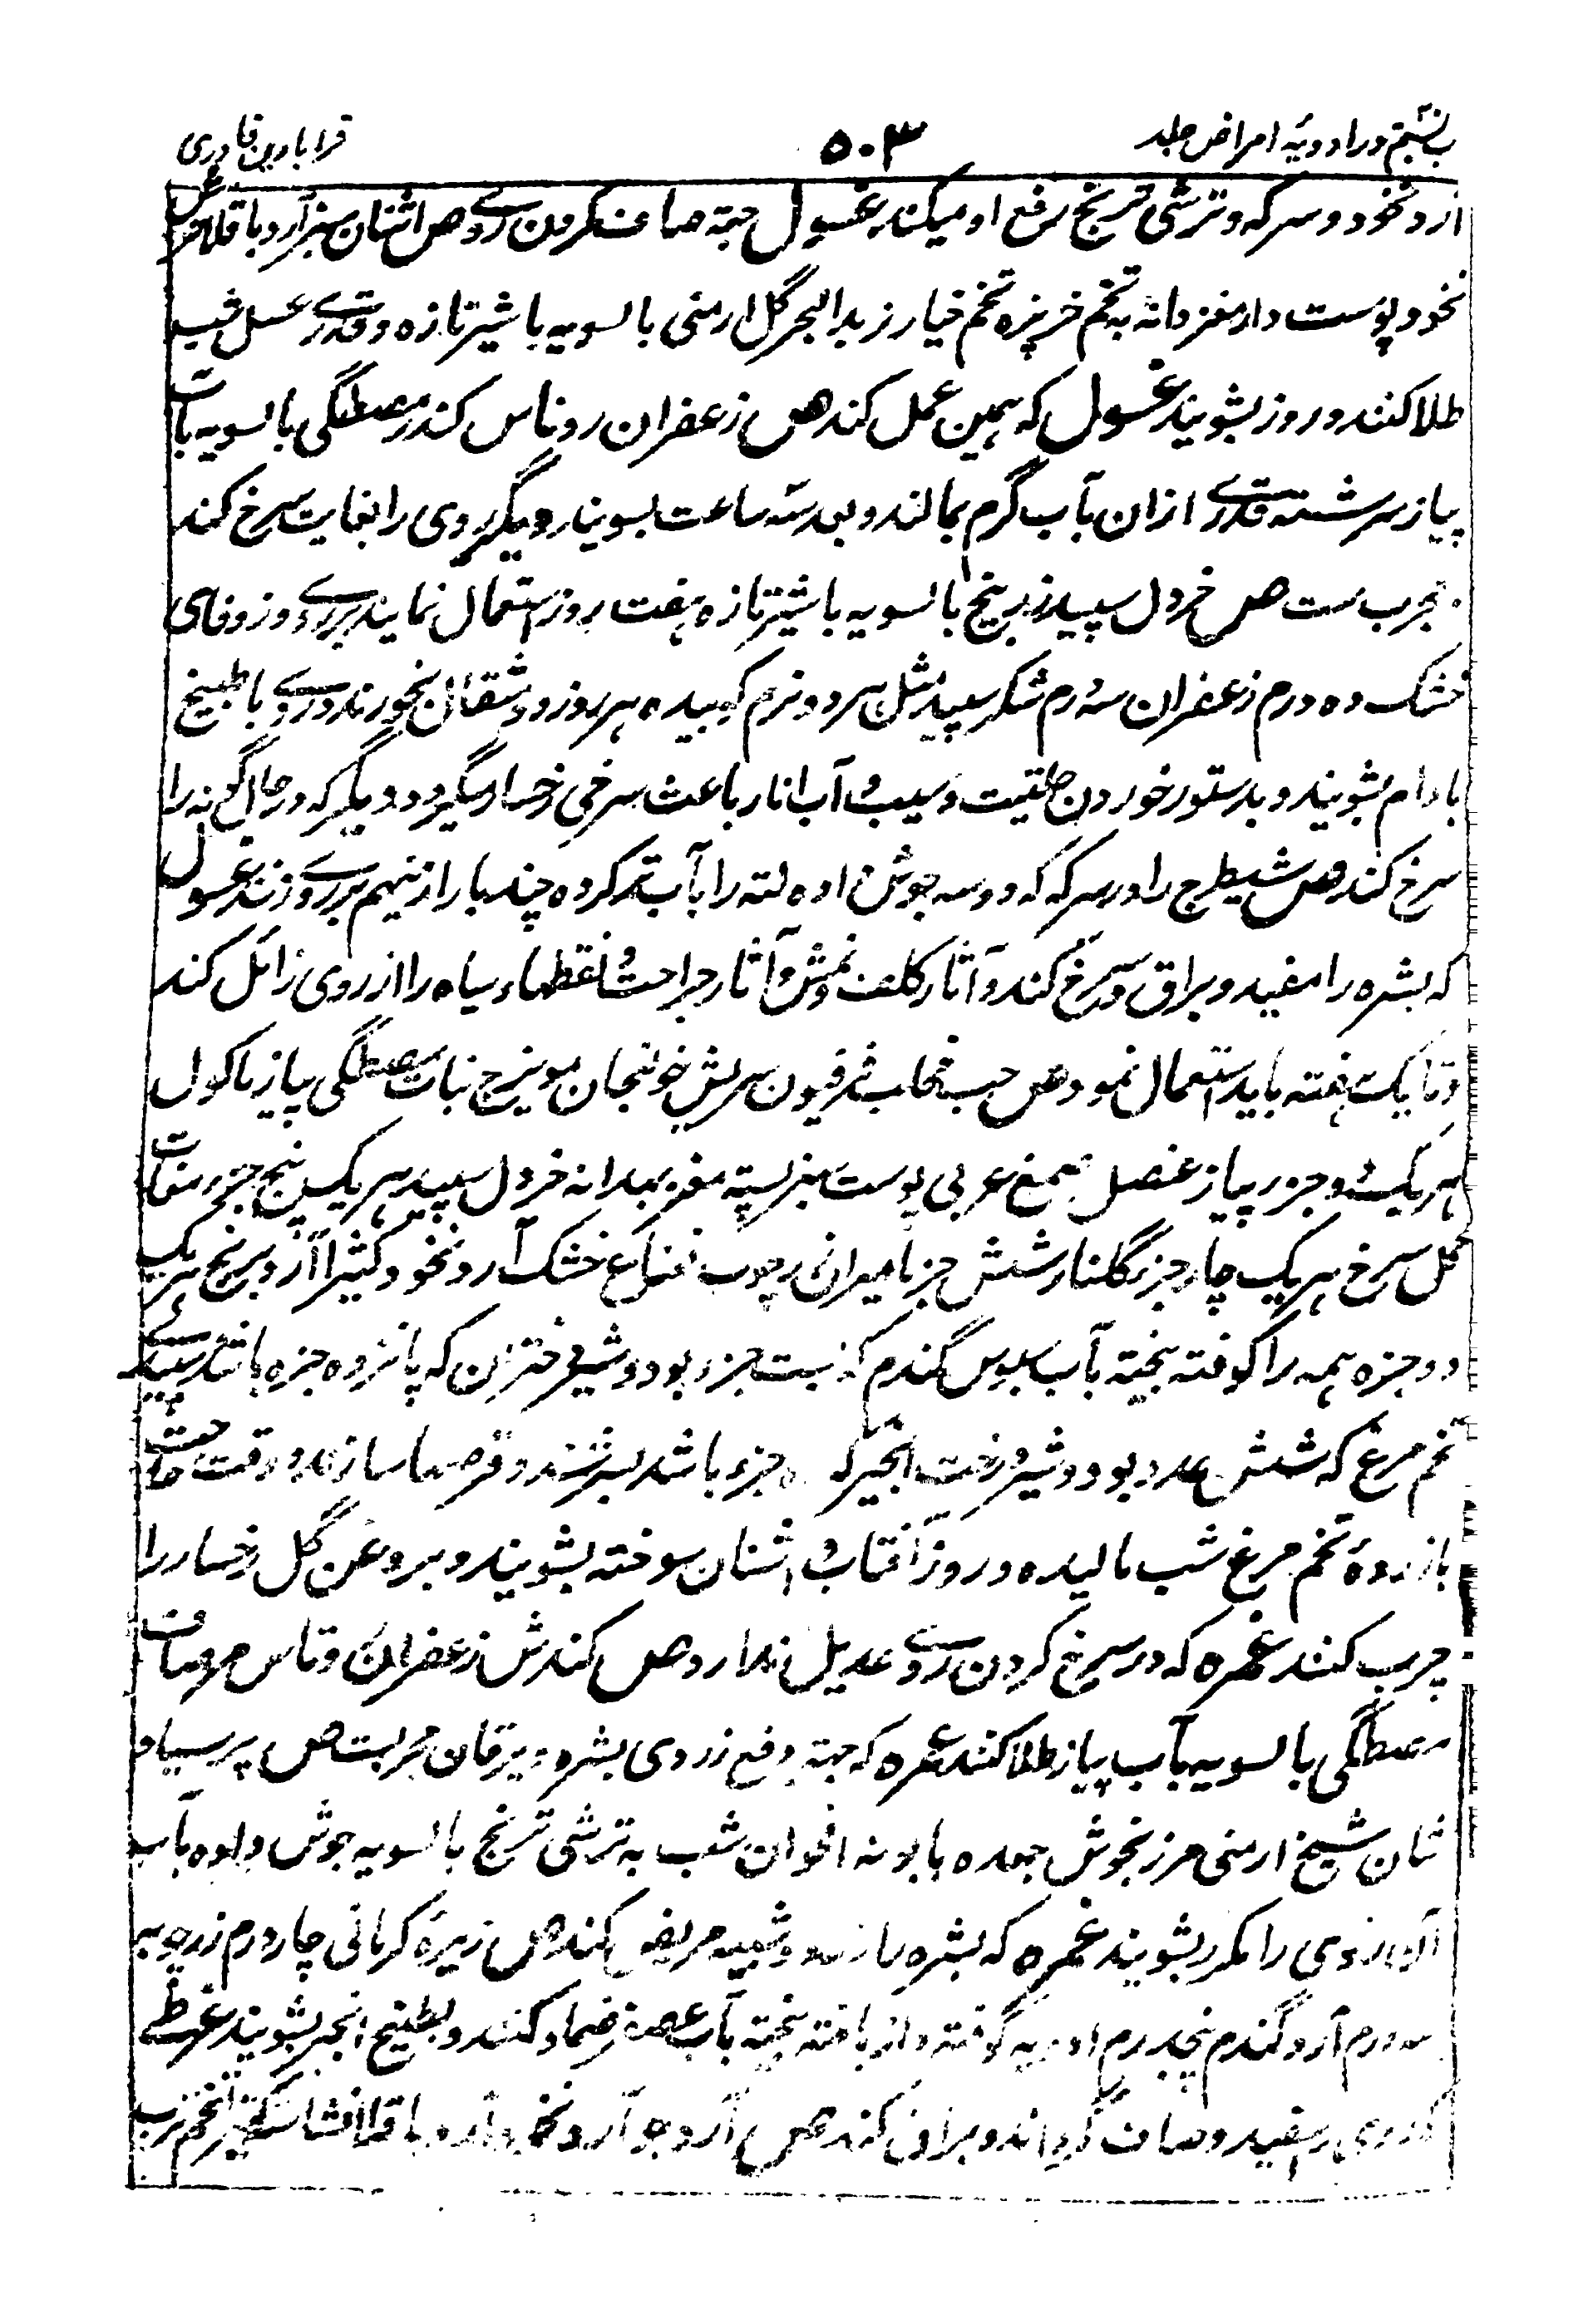 بستم در ادویهٔ امراض جلد ۵۰۳ قرابادین قادری
آرد نخود و سرکه و ترشی ترنج رفع او میکند غسول جهته صاف کردن روی ص اشنان سبز آرد باقلا ترمس
نخود پوست دار مغز دانه به تخم خرپزه تخم خیار زبد البحر گل ارمنی بالسویه با شیر تازه و قدری عسل شب
طلا کنند و روز بشویند غسول که همین عمل کند ص زعفران روناس کندر مصطگی بالسویه بآب
پیاز سرشته قدری ازان بآب گرم بمالند و بعد سه ساعت بشویند دیگر روی را بغایت سرخ کند
مجرب ست ص خردل سپید زرنیخ بالسویه با شیر تازه هفت روز استعمال نمایند بر روی و زوفای
خشک ده درم زعفران سه درم شکر سپید مثل هر دو نرم کوبیده هر روز دو مثقال بخورند و روی با طبیخ
بادام بشویند و بدستور خوردن حلتیت و سیب و آب انار باعث سرخی رخسار میگردد دیگر که در حال گونه را
سرخ کند ص شیطرج را در سرکه که دو سه جوش داده لته را بآب تر کرده چند بار ازینهم بر روی زنند غسول
که بشره را مفید و براق و سرخ کند و آثار کلف و نمش و آثار جراحت و نقطهاء سیاه را از روی زائل کند
و تا یک هفته باید استعمال نمود ص حب محلب فرفیون سریش خولنجان مویزج نبات مصطگی پیاز ماکول
هر یک دو جزء پیاز عنصل صمغ عربی پوست مغز پسته مغز بهدانه خردل سپید هر یک پنج جزء
گل سرخ هر یک چار جزء گلنار شش جزء مامیران زرچوب نعناع خشک آرد نخود کثیرا آرد برنج هر یک
دو جزء همه را کوفته بیخته بآب سبوس گندم که بست جزء بود و شیر دختر زن که پانزده جزء باشد و سپیدی
تخم مرغ که شش عدد بود و شیر درخت انجیر که ده جزء باشد بسرشند و قرصها سازند و وقت حاجت
با زردهٔ تخم مرغ شب مالیده و روز آفتاب و اشنان سوخته بشویند و بروغن گل رخسار را
چرب کنند غمره که در سرخ کردن روی عدیل ندارد ص کندش زعفران روناس مر صاف
مصطگی بالسویه بآب پیاز طلا کنند غمره که جهته دفع زردی بشره و یرقان مجربست ص پرسیاو
شان شیخ ارمنی مرزنجوش جعده بابونه اقحوان شب به ترشی ترنج بالسویه جوش داده بآب
آن روی را مکرر بشویند غمره که بشره را زرد و شبیه مریض کند ص زیرهٔ کرمانی چار درم زرچوبه
سه درم آرد گندم پنج درم ادویه کوفته و از بافته بیخته بآب عصفر ضماد کنند و بطبیخ انجیر بشویند غمره
که روی را سفید و صاف گرداند و براق کند ص آرد جو آرد نخود آرد باقلا نشاسته کثیرا تخم ترب